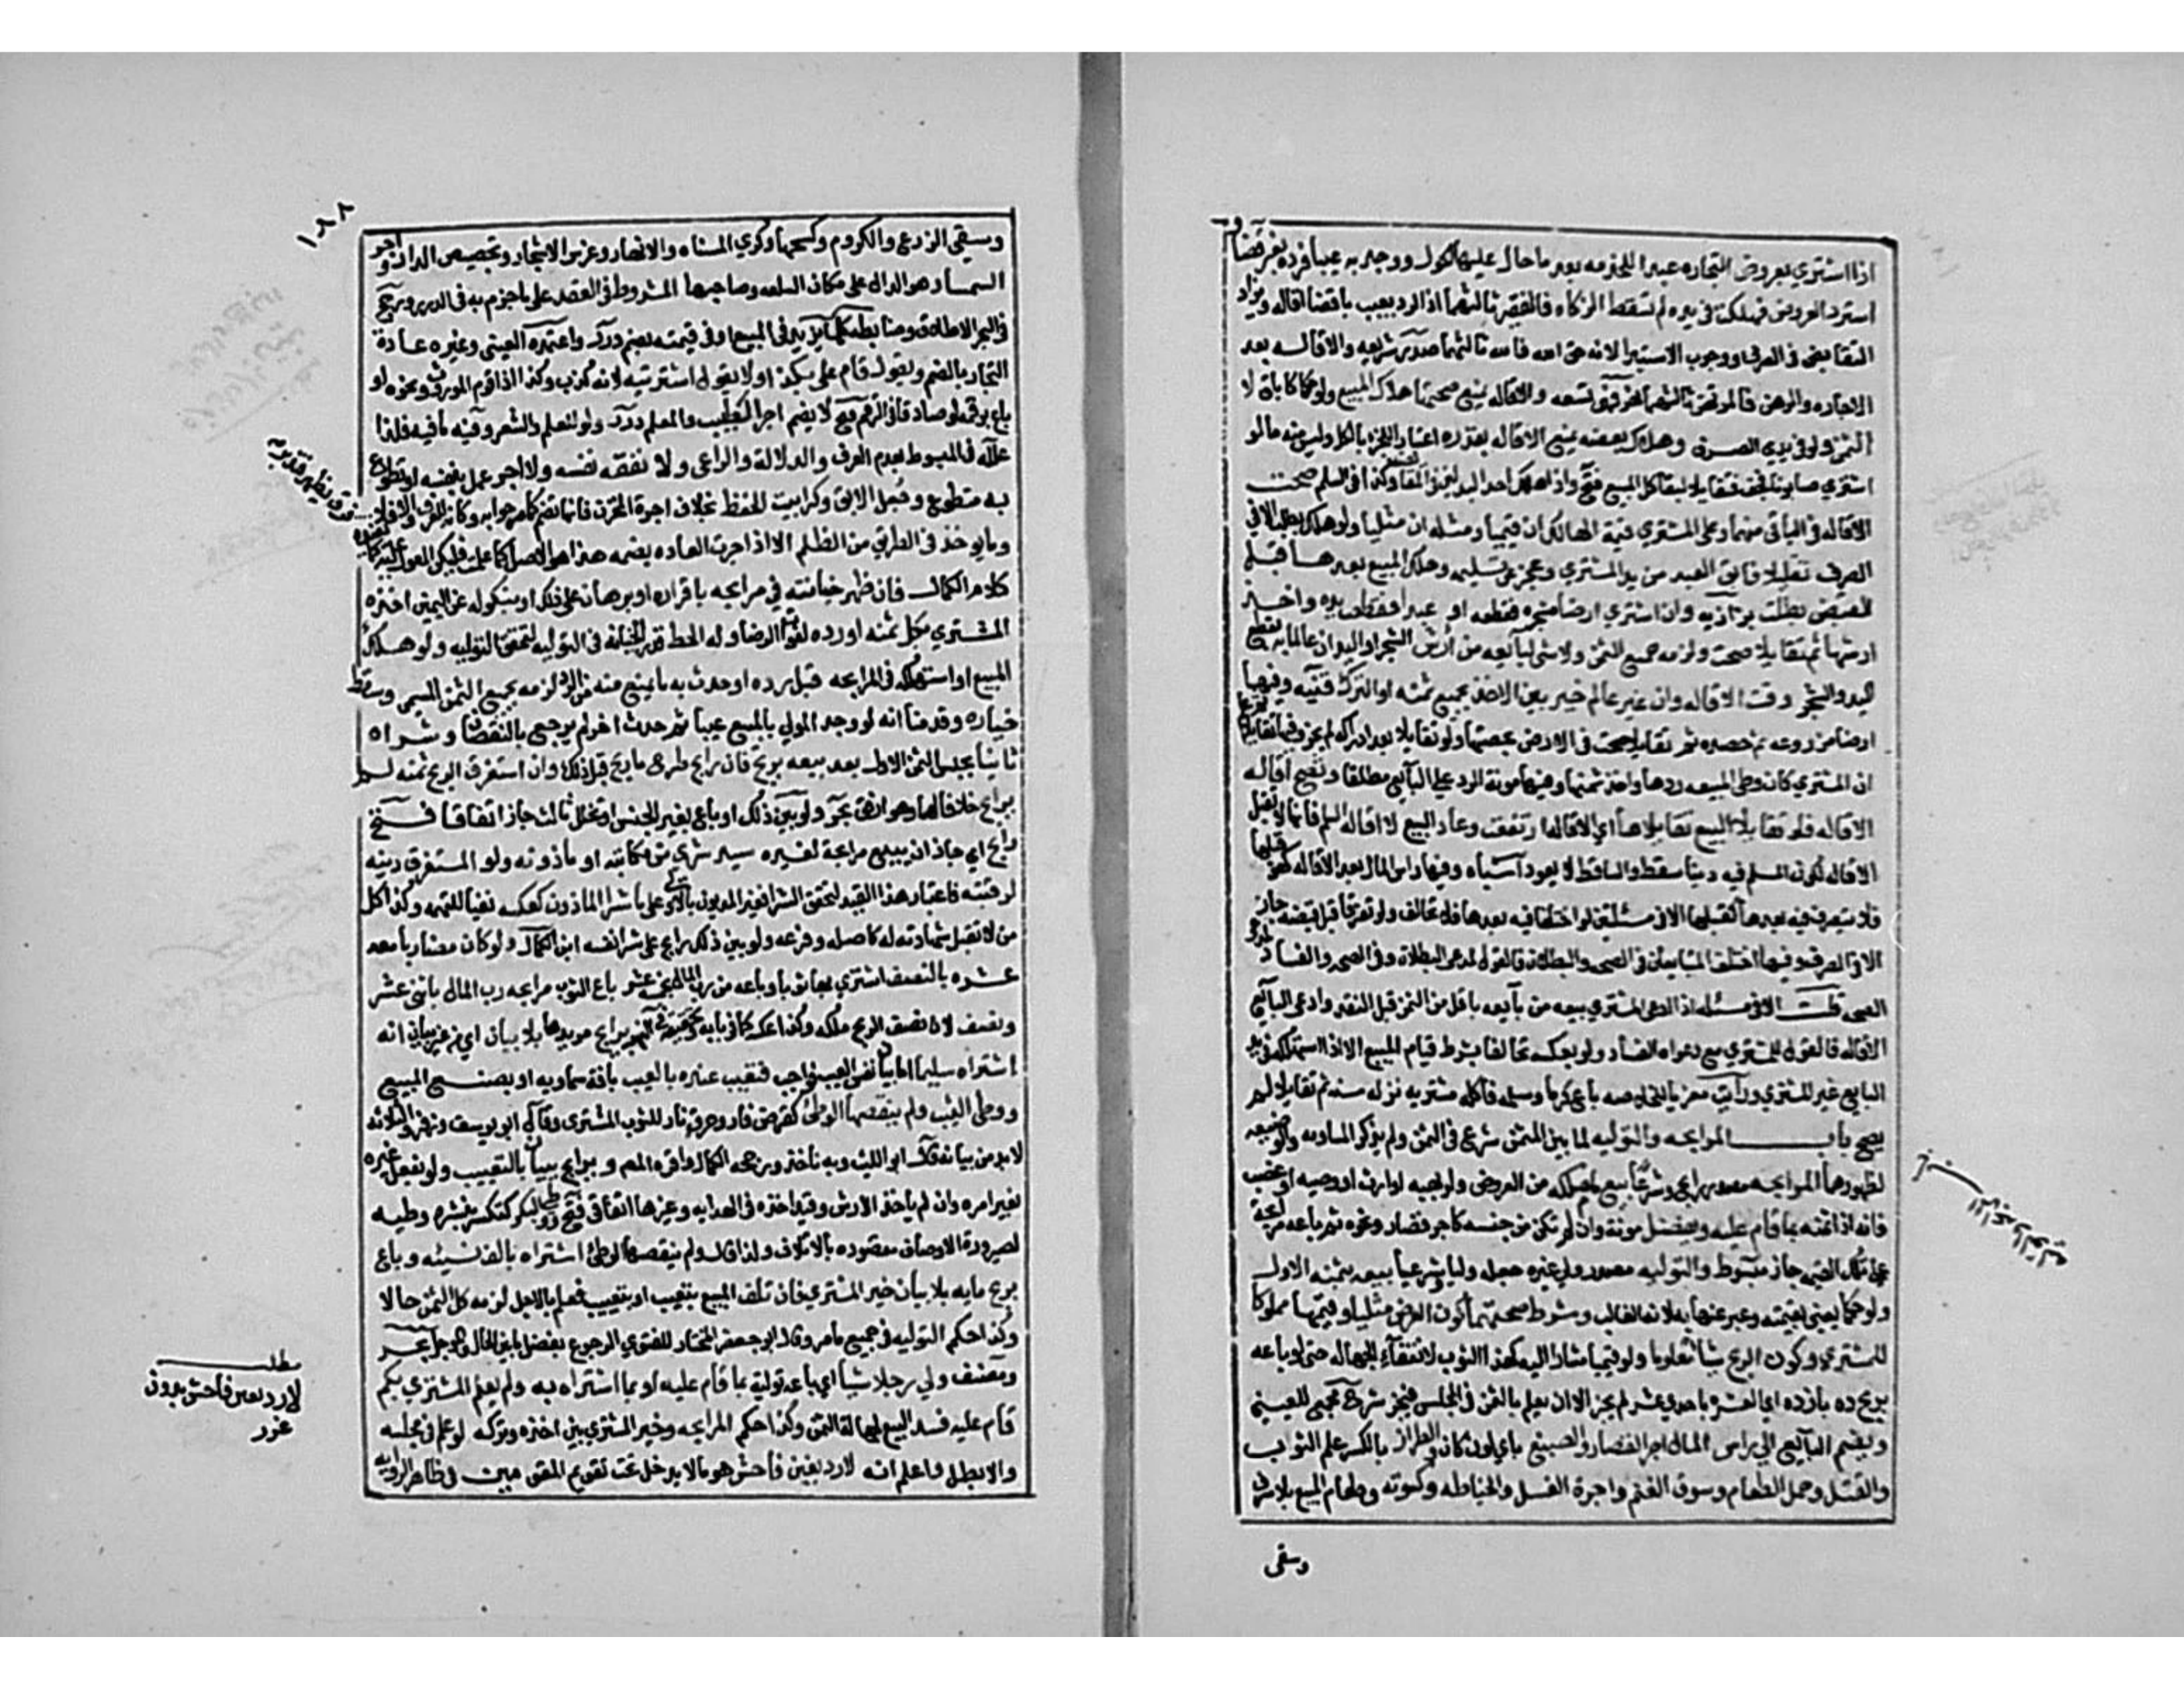 اذا اشترى بعروض التجاره عبدا للخدمه بعد ما حال عليها الحول ووجد به عيبا فرده بغير قضا و
استرد العروض فهلكت في يده لم تسقط الزكاه فالفقير ثالثهما اذ الرد بعيب بلا قضا اقاله ويزاد
التقابض في الصرف ووجوب الاستبرا لانه حق الله فالله ثالثهما صدر شريعه والاقاله بعد
الاجاره والرهن فالمرتهن ثالثهما نهر فهي تسعه والاقاله يمنع صحتها هلاك المبيع ولو حكما كاباق لا
الثمن ولو في بدلي الصرف وهلاك بعضه يمنع الاقاله بقدره اعتبارا للجزء بالكل وليس منه ما لو
اشترى صابونا فجف فتقايلا لبقا كل المبيع فتح واذا هلك احد البدلين في المقايضه وكذا في السلم صحت
الاقاله في الباقي منهما وعلى المشتري قيمة الهالك ان قيميا ومثله ان مثليا ولو هلكا بطلت الا في
الصرف تقايلا فابق العبد من يد المشتري وعجز عن تسليمه او هلك المبيع بعدها قبل
القبض بطلت بزازيه وان اشترى ارضا مشجره فقطعه او عبدا فقطعت يده واخذ
ارشها ثم تقايلا صحت ولزمه جميع الثمن ولا شي لبايعه من ارش الشجر او اليد ان عالما به بقطع
اليد والشجر وقت الاقاله وان غير عالم خير بين الاخذ بجميع ثمنه او الترك قنيه وفيها
ارضا مزروعه ثم حصده ثم تقايلا صحت في الارض بحصتها ولو تقايلا بعد ادراكه لم يجز وفيها تقايلا ثم علم
ان المشتري كان وطئ المبيعه ردها واخذ ثمنها وفيها مونة الرد على البايع مطلقا وتصح اقاله
الاقاله فلو تقايلا البيع ثم تقايلاها اي الاقاله ارتفعت وعاد البيع لا اقاله السلم فانها لا تقبل
الاقاله لكون المسلم فيه دينا سقط والساقط لا يعود اشباه وفيها راس المال بعد الاقاله كهو قبلها
فلا يتصرف فيه بعدها كقبلها الا في مسئلتين لو اختلفا فيه بعدها فلا تحالف ولو تفرقا قبل قبضه جاز
الا في الصرف وفيها اختلف المتبايعان في الصحه والبطلان فالقول لمدعي البطلان وفي الصحه والفساد لمدعي
الصحه قلت الا في مسئله اذا ادعى المشتري بيعه من بايعه باقل من الثمن قبل النقد وادعى البايع
الاقاله فالقول للمشتري مع دعواه الفساد ولو بعكسه تحالفا بشرط قيام المبيع الا اذا استهلكه في يد
البايع غير المشتري ورايت معزيا للخلاصه باع كرما وسلمه فاكل مشتريه نزله سنه ثم تقايلا لم
يصح باب المرابحه والتوليه لما بين المثمن شرع في الثمن ولم يذكر المساومه والوضيعه
لظهورهما المرابحه مصدر رابح وشرعا بيع ما ملكه من العروض ولو بهبه او ارث او وصيه او غصب
فانه اذا ثمنه بما قام عليه وبفضل مونة وان لم تكن من جنسه كاجر قصار ونحوه ثم باعه مرابحة
على تلك القيمه جاز مبسوط والتوليه مصدر ولى غيره جعله واليا وشرعا بيعه بثمنه الاول
ولو حكما يعني بقيمته وعبر عنها به لانه الغالب وشرط صحتهما كون العوض مثليا او قيميا مملوكا
للمشتري وكون الربح شيا معلوما ولو قيميا مشارا اليه كهذا الثوب لانتفاء الجهاله حتى لو باعه
بربح ده يازده اي العشره باحد عشر لم يجز الا ان يعلم بالثمن في المجلس فيخير شرح مجمع للعيني
ويضم البايع الى راس المال اجر القصار والصبغ باي لون كان والطراز بالكسر علم الثوب
والفتل وحمل الطعام وسوق الغنم واجرة الغسل والخياطه وكسوته وطعام المبيع بلا سرف
وسقي
وسقي الزرع والكروم وكسحها وكري المسناه والانهار وغرس الاشجار وتجصيص الدار واجر
السمسار هو الدال على مكان السلعه وصاحبها المشروط في العقد على ما جزم به في الدرر ورجح
في البحر الاطلاق وضابطه كل ما يزيد في المبيع او في قيمته يضم درر واعتمده العيني وغيره عادة
التجار بالضم ويقول قام علي بكذا ولا يقول اشتريته لانه كذب وكذا اذا قوم الموروث ونحوه او
باع برقمه لو صادقا في الرقم فتح لا يضم اجر الطبيب والمعلم درر ولو للعلم والشعر وفيه ما فيه فلذا
علله في المبسوط بعدم العرف والدلالة والراعي ولا نفقه نفسه ولا اجر عمل بنفسه او تطوع
به متطوع وجعل الابق وكرا بيت الحفظ بخلاف اجرة المخزن فانها تضم كما صرحوا به وكانه للعرف والا فلا
وما يوخذ في الطريق من الظلم الا اذا جرت العاده بضمه هذا هو الاصل كما علمت فليكن المعول عليه كما يفيده
كلام الكمال فان ظهر خيانته في مرابحه باقراره او برهان على ذلك او بنكوله عن اليمين اخذه
المشتري بكل ثمنه او رده لفوات الرضا وله الحط قدر الخيانه في التوليه لتحقق التوليه ولو هلك
المبيع او استهلكه في المرابحه قبل رده او حدث به ما يمنع منه من الرد لزمه بجميع الثمن المسمى وسقط
خياره وقدمنا انه لو وجد المولى بالمبيع عيبا ثم حدث اخر لم يرجع بالنقصان وشراه
ثانيا بجنس الثمن الاول بعد بيعه بربح فان رابح طرح ما ربح قبل ذلك وان استغرق الربح ثمنه لم
يرابح خلافا لهما وهو ارفق بحر ولو بين ذلك او باع بغير الجنس او تخلل ثالث جاز اتفاقا فتح
رابح اي جاز ان يبيع مرابحة لغيره سيد شرى من مكاتبه او ماذونه ولو المستغرق دينه
لرقبته فاعتبار هذا القيد لتحقق الشرا فغير المديون بالاولى على ما شرا الماذون كعكسه نفيا للتهمه وكذا كل
من لا تقبل شهادته له كاصله وفرعه ولو بين ذلك رابح على شرا نفسه ابن الكمال ولو كان مضاربا معه
عشره بالنصف اشترى بها ثوبا وباعه من رب المال بخمسة عشر باع الثوب مرابحه رب المال باثني عشر
ونصف لان نصف الربح ملكه وكذا عكسه كما في بابه وتحقيقه في النهر يرابح مريدها بلا بيان اي من غير بيان انه
اشتراه سليما اما بيان نفس العيب فواجب فتعيب عنده بالعيب بافة سماويه او بصنع المبيع
ووطئ الثيب ولم ينقصها الوطئ كقرض فار وحرق نار للثوب المشترى وقال ابو يوسف وزفر والثلاثه
لا بد من بيانه قال ابو الليث وبه ناخذ ورجحه الكمال واقره المص و يرابح ببيان بالتعييب ولو بفعل غيره
بغير امره وان لم ياخذ الارش وقيد اخذه في الهدايه وغيرها اتفاقي فتح ووطئ البكر كتكسره بنشره وطيه
لصيرورة الاوصاف مقصوده بالاتلاف ولذا قال ولم ينقصها الوطئ اشتراه بالف نسيئه وباع
بربح مايه بلا بيان خير المشتري فان تلف المبيع بتعيب او تعييب فعلم بالاجل لزمه كل الثمن حالا
وكذا حكم التوليه في جميع ما مر وقال ابو جعفر المختار للفتوى الرجوع بفضل ما بين الحال والموجل بحر
ومصنف ولى رجلا شيا اي باعه تولية بما قام عليه او بما اشتراه به ولم يعلم المشتري بكم
قام عليه فسد البيع لجهالة الثمن وكذا حكم المرابحه وخير المشتري بين اخذه وتركه لو علم في مجلسه
والا بطل واعلم انه لا رد بغبن فاحش هو ما لا يدخل تحت تقويم المقومين في ظاهر الروايه
مطلب
لا رد بغبن فاحش بدون
غرر